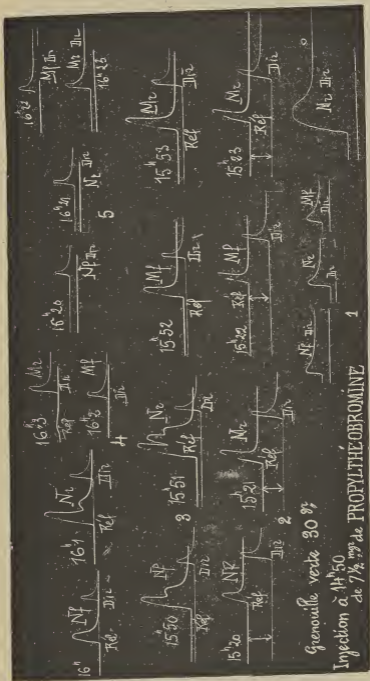 16ʰ Nf Réf Dir
16ʰ1 Nr Réf Dir
16ʰ3 Mr Réf Dir
16ʰ2 Mf Dir
4
16ʰ20 Nf Dir
16ʰ21 Nr Dir
5
Mf Dir
Mr Dir
15ʰ50 Nf Réf Dir
15ʰ51 Nr Réf Dir
3
15ʰ52 Mf Réf Dir
15ʰ53 Mr Réf Dir
15ʰ20 Nf Réf Dir
15ʰ21 Nr Réf Dir
2
15ʰ22 Mf Réf Dir
15ʰ23 Mr Réf Dir
Nf Dir
Nr Dir
Mf Dir
Mr Dir
1
Grenouille verte 30 gr
Injection à 14ʰ50
de 7½ mgr. de PROPYLTHÉOBROMINE